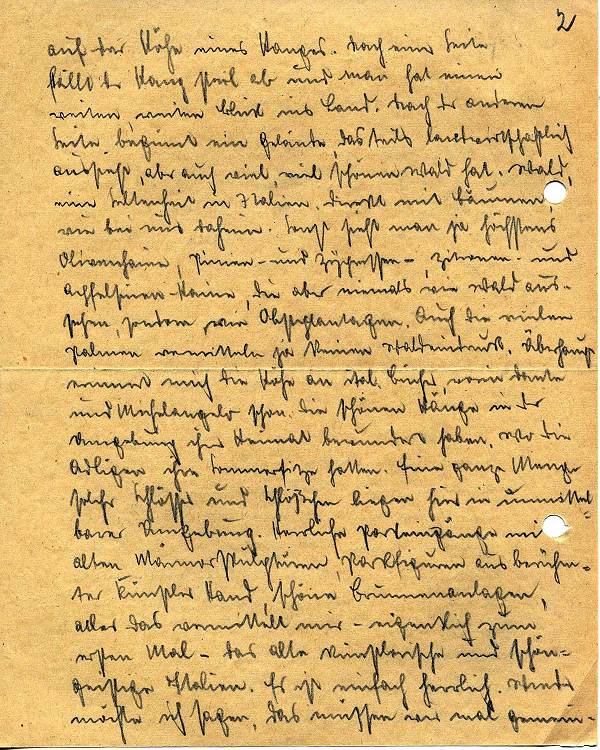 2
auf der Höhe eines Hanges. Nach einer Seite
fällt der Hang steil ab und man hat einen
weiten, weiten Blick ins Land. Nach der anderen
Seite beginnt ein Gelände, das teils landwirtschaftlich
aussieht, aber auch viel, viel schönen Wald hat. Wald,
eine Seltenheit in Italien. Direkt mit Bäumen,
wie bei uns daheim. Sonst sieht man ja höchstens
Olivenhaine, Pinien- und Zypressen-, Zitronen- und
Apfelsinen-Haine, die aber niemals wie Wald aus-
sehen, sondern wie Obstplantagen. Auch die vielen
Palmen vermitteln ja keinen Waldeindruck. Überhaupt
erinnert mich die Höhe an ital. Bücher, worin Dante
und Michelangelo schon die schönen Hänge in der
Umgebung ihrer Heimat bewundert haben, wo die
Adligen ihre Sommersitze hatten. Eine ganze Menge
solcher Schlösser und Schlößchen liegen hier in unmittel-
barer Umgebung. Herrliche Parkeingänge mit
alten Marmorskulpturen, Parkfiguren aus berühm-
ter Künstler Hand, schöne Brunnenanlagen,
alles das vermittelt mir - eigentlich zum
ersten Mal - das alte künstlerische und schön-
geistige Italien. Es ist einfach herrlich.
möchte ich sagen, das müssen wir mal gemein-